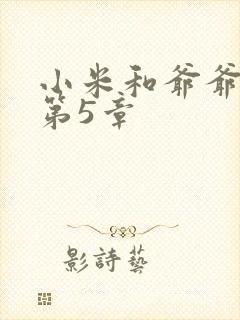 小米和爺爺
第5章
影詩藝